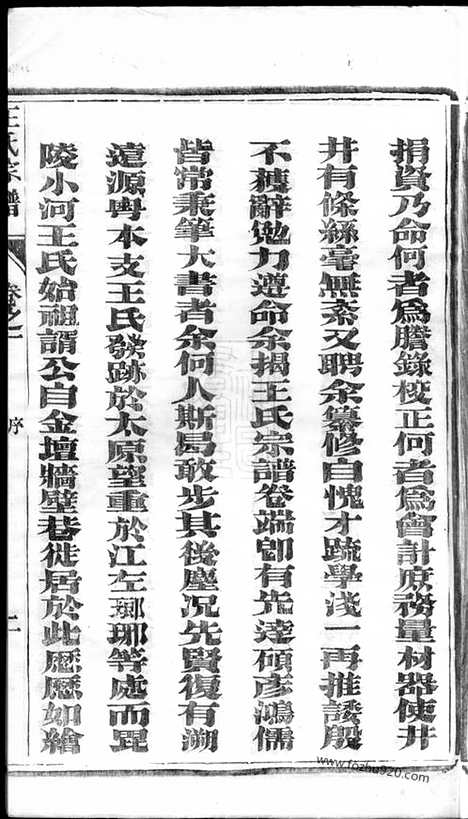 捐貲乃命何者爲謄錄校正何者爲會計庶務量材器使井
井有條絲毫無紊又聘余纂修自愧才疏學淺一再推諉殷
不獲辭勉力遵命余揭王氏宗譜卷端卽有先達碩彥鴻儒
皆常秉筆大書者余何人斯曷敢步其後塵况先賢復有溯
遠源粵本支王氏發跡於太原望重於江左瑯琊等處而毘
陵小河王氏始祖諝公自金壇牆壁巷徙居於此歷歷如繪
王氏宗譜
卷之一
序
二
www.fozhu920.com